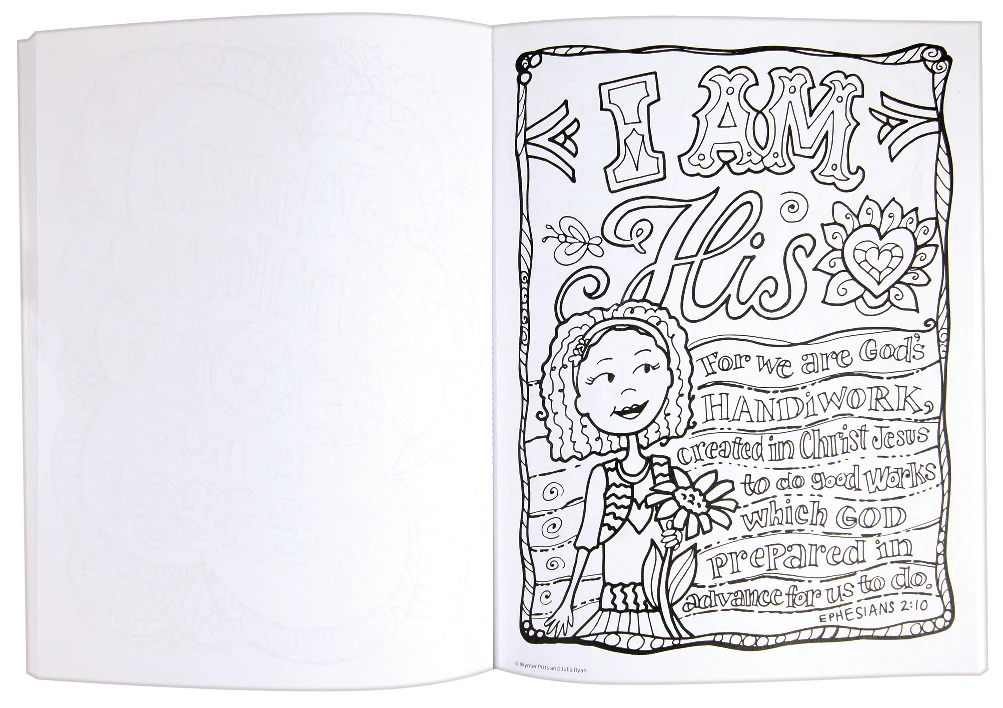 I AM
His
For we are God's
HANDiWORK,
created in Christ Jesus
to do good works
which GOD
prepared in
advance for us to do.
EPHESIANS 2:10
© Wynter Pitts and Julia Ryan